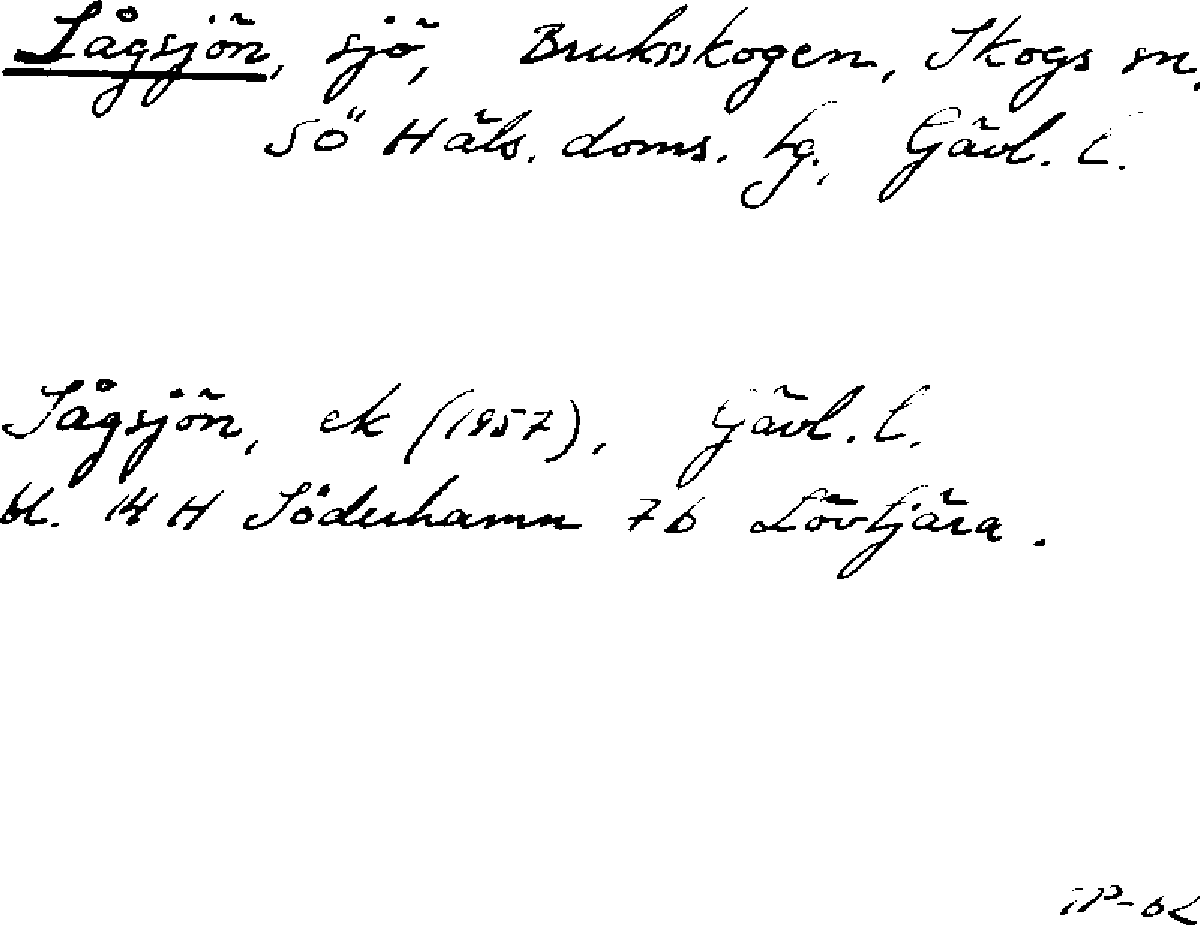 Sågsjön, sjö, Bruksskogen, Skogs sn.
SÖ Häls. doms. tg., Gävl. l.
Sågsjön, ek (1957), Gävl. l.
bl. 14 H Söderhamn 7 b Lövtjära.